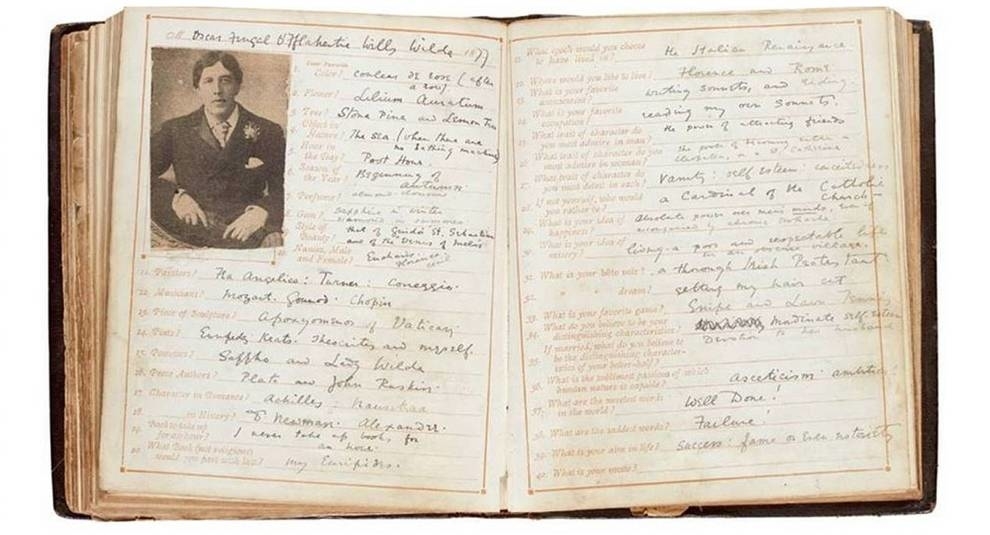 Oscar Fingal O'Flahertie Wills Wilde 1877
Your Favorite
1. Color? couleur de rose (after
a row)
2. Flower? Lilium Auratum
3. Tree? Stone Pine and Lemon Tree
4. Object in The sea (when there are
Nature? no bathing machines
5. Hour in
the Day? Post Hour
6. Season of Beginning of
the Year? autumn
7. Perfume? almond
8. Gem? Sapphire in winter
in summer
9. Style of that of Guido's St. Sebastian
Beauty? and of the Venus of Melos
10. Names, Male
and Female? Eucharis
Florence
11. Painters? Fra Angelico: Turner: Correggio.
12. Musicians? Mozart. Gounod. Chopin
13. Piece of Sculpture? Apoxyomenos of Vatican
14. Poets? Euripides Keats. Theocritus and myself.
15. Poetesses? Sappho and Lady Wilde
16. Prose Authors? Plato and John Ruskin.
17. Character in Romance? Achilles: Nausikaa
18. in History? Newman. Alexander.
19. Book to take up I never take up books for
for an hour? an hour.
20. What Book (not religious)
would you part with last? my Euripides.
What epoch would you choose
to have lived in? the Italian Renaissance.
Where would you like to live? Florence and Rome
What is your favorite
amusement? writing sonnets, and reading
What is your favorite
occupation? reading my own sonnets.
What trait of character do
you most admire in man? the power of attracting friends
What trait of character do you
most admire in woman? the power of
Cleopatra, or a St. Catherine
What trait of character do
you most detest in each? vanity: self esteem: conceitedness.
If not yourself, who would
you rather be? a Cardinal of the Catholic
Church
What is your idea of
happiness? absolute power over men's minds, even if
accompanied by chronic toothache
What is your idea of
misery? living a poor and respectable life
in an obscure village.
What is your bête noir? a thorough Irish Protestant
" " dream? getting my hair cut
What is your favorite game? Snipe and Lawn Tennis
What do you believe to be your
distinguishing characteristics? inordinate self esteem
If married, what do you believe to Devotion to her husband
be the distinguishing character-
istics of your better-half?
What is the sublimest passion of which
human nature is capable? asceticism ambition
37. What are the sweetest words
in the world? Well Done!
38. What are the saddest words? Failure!
39. What is your aim in life? success: fame or even notoriety
40. What is your motto?